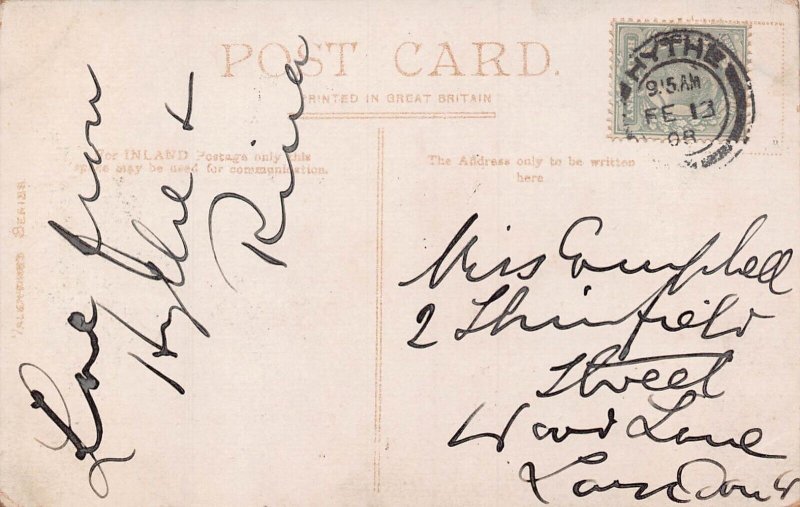 POST CARD.
PRINTED IN GREAT BRITAIN
For INLAND Postage only this
space may be used for communication.
The Address only to be written
here
VALENTINES SERIES
HYTHE
9.15 AM
FE 13
08
Love from
&
Miss Campbell
2 Thinfield
Street
Wood Lane
London W